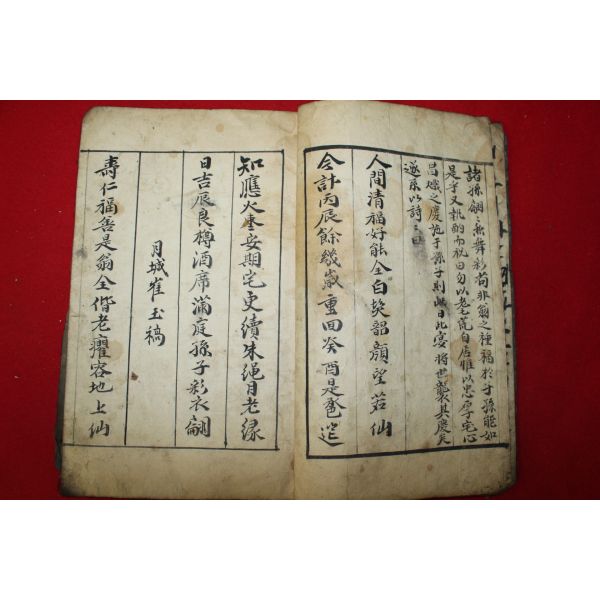 諸孫翩〻亦舞彩苟非翁之種福於子孫能如
是乎又執酌而祝曰勿以老荒自居惟以忠厚宅心
昌熾之慶詑于孫子則此日此宴將世襲其慶矣
遂系以詩〻曰
人間清福好能全白髮韶顔望若仙
今計丙辰餘幾歲重回癸酉是遐
知應火棗安期宅更續朱繩月老緣
日吉辰良樽酒席滿庭孫子彩衣翩
月城崔玉稿
壽仁福善是翁全偕老癯容地上仙